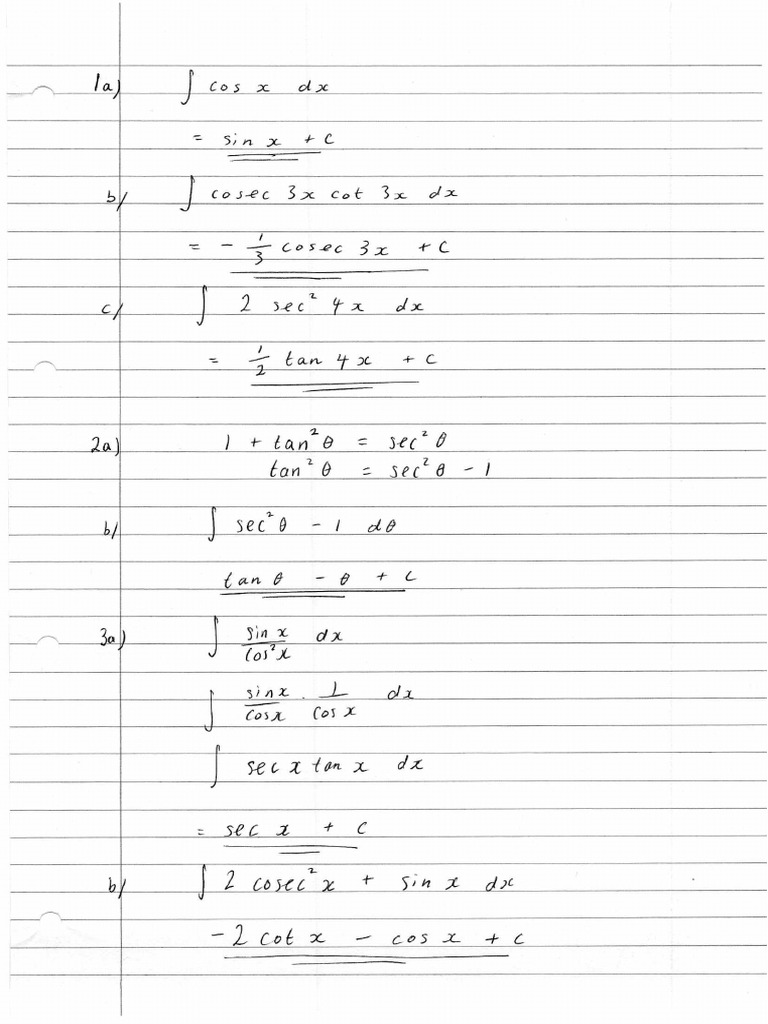 1a) ∫ cos x dx
= sin x + c
b/ ∫ cosec 3x cot 3x dx
= - 1/3 cosec 3x + c
c/ ∫ 2 sec² 4x dx
= 1/2 tan 4x + c
2a) 1 + tan²θ = sec²θ
tan²θ = sec²θ - 1
b/ ∫ sec²θ - 1 dθ
tan θ - θ + c
3a) ∫ sin x/cos²x dx
∫ sin x/cos x . 1/cos x dx
∫ sec x tan x dx
= sec x + c
b/ ∫ 2 cosec²x + sin x dx
-2 cot x - cos x + c